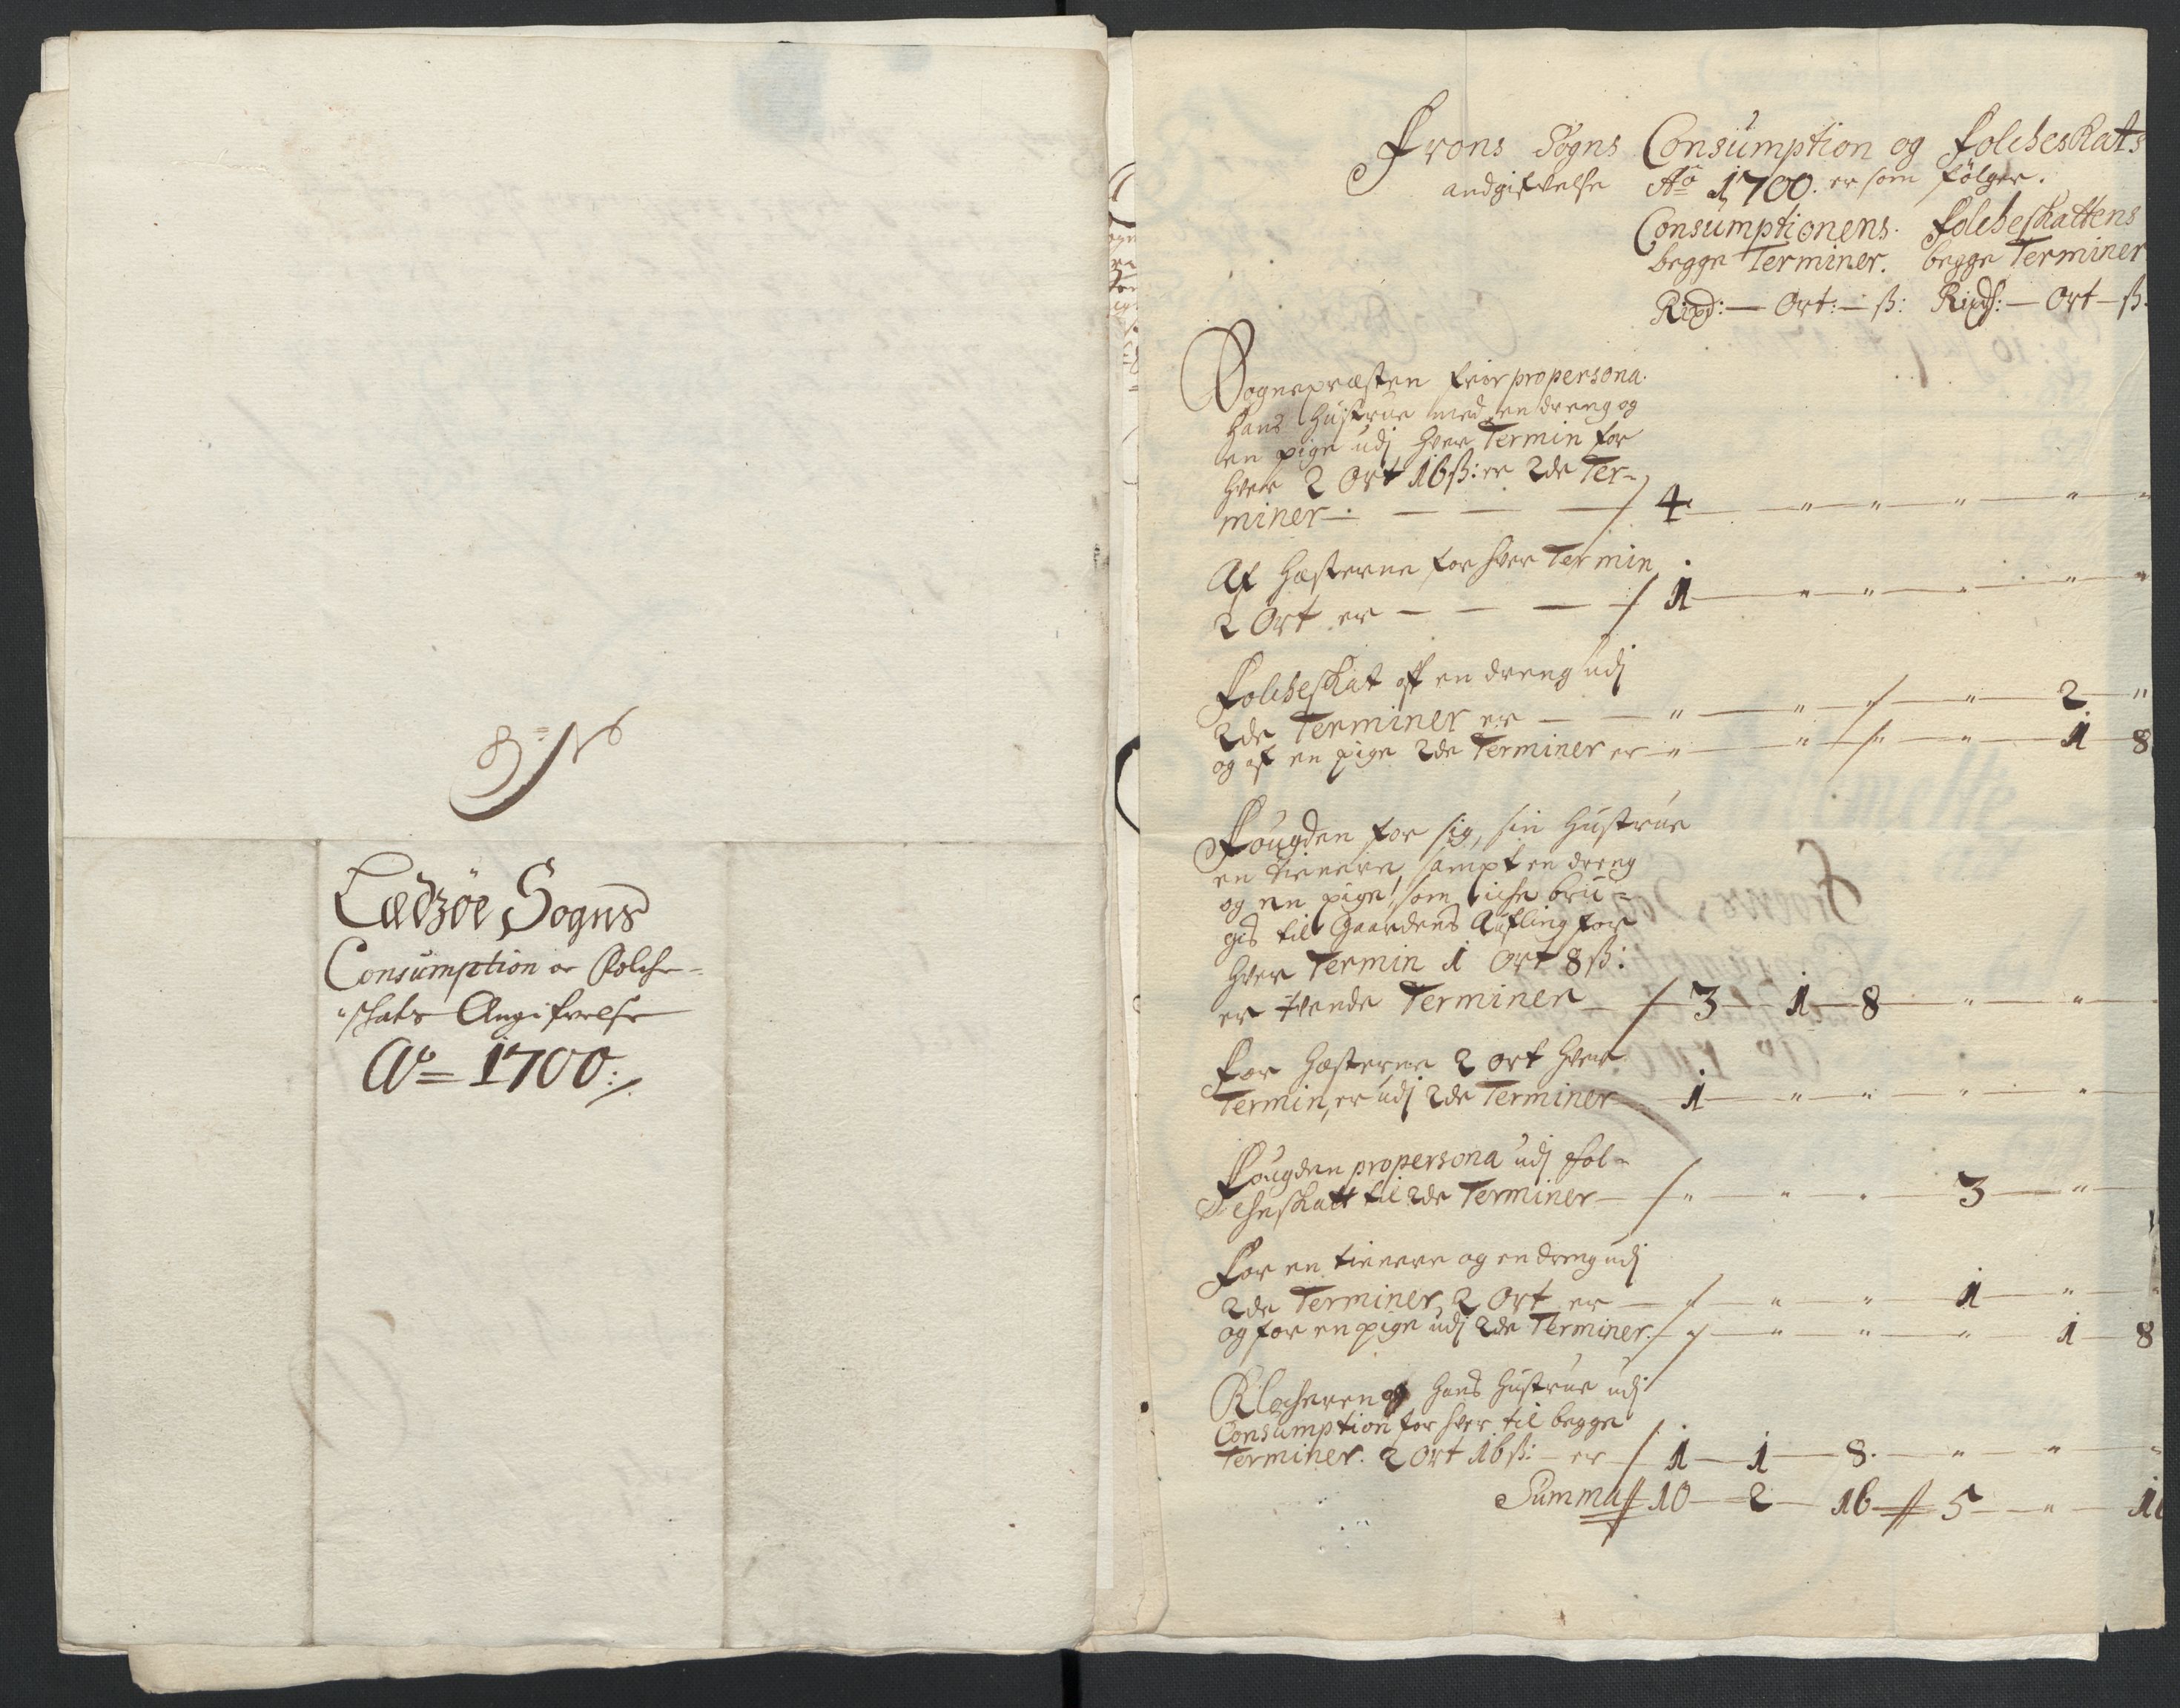 Ledzøe Sogns
Consumption oc Folche-
schats Angifvelse
Ao 1700:/.
Frons Sogns Consumption og Folcheskats
andgifvelse Ao 1700. er som følger.
Consumptionens. Folcheskattens
begge Terminer. begge Terminer
Rixd: — Ort: — ß: Rixds: — Ort — ß.
Sognepræsten frir propersona.
hans hustrue med en dreng og
en pige udj hver Termin for
hver 2 Ort 16 ß: er 2de Ter-
miner — 4 " " " " "
Af hesterne for hver Termin
2 Ort er — 1 " " " " "
Folcheskat aff en dreng udj
2de Terminer er — " " " " 2 "
og af en pige 2de Terminer er " " " " 1 8
Fougden for sig, sin hustrue
en tienere, sampt en dreng
og en pige, som iche bru-
gis til Gaardens Aufling for
hver Termin 1 Ort 8 ß:
er tvende Terminer — 3 1 8 " "
For hesterne 2 ort hver
Termin, er udj 2de Terminer 1 " " " "
Fougden propersona udj fol-
cheskatt til 2de Terminer — " " " 3 "
For en tienere og en dreng udj
2de Terminer, 2 Ort er — " " " 1 "
og for en pige udj 2de Terminer. " " " " 1 8
Klocheren og hans hustrue udj
Consumption for hver til begge
Terminer. 2 Ort 16 ß: — er 1 1 8. " " "
Summa 10 2 16 5 "